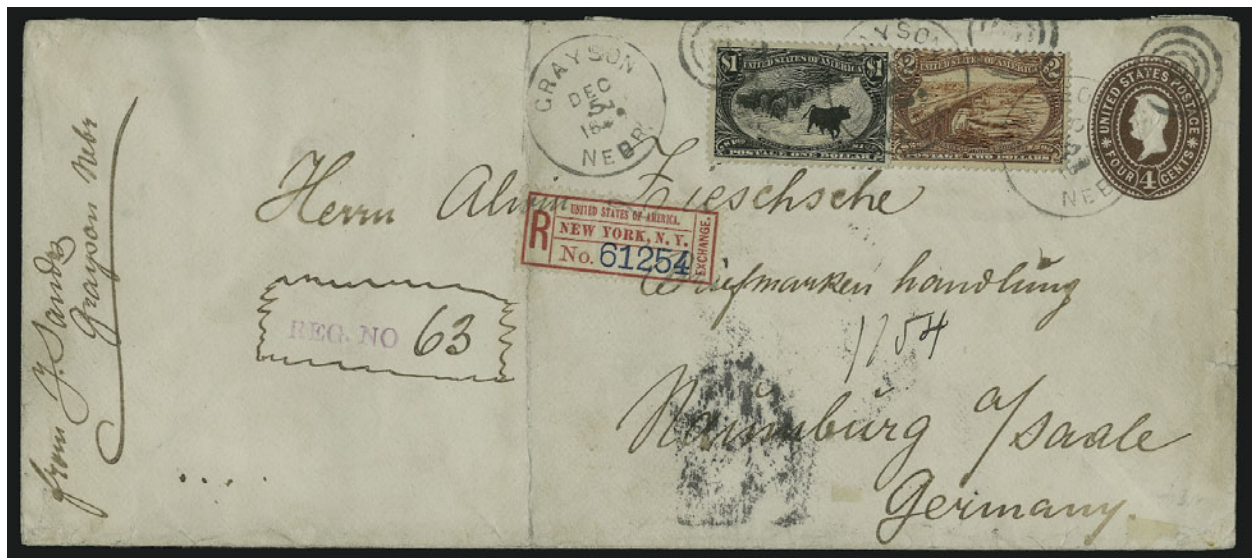 from J. Sands
Grayson Nebr
GRAYSON
DEC
NEBR.
$1 UNITED STATES OF AMERICA $1
POSTAGE ONE DOLLAR
$2 UNITED STATES OF AMERICA $2
POSTAGE TWO DOLLARS
UNITED STATES POSTAGE
FOUR 4 CENTS
NEB
Herrn Alwin Zieschsche
R
UNITED STATES OF AMERICA.
NEW YORK, N. Y.
No. 61254
EXCHANGE.
Briefmarken handlung
REG. NO 63
1754
Naumburg a/Saale
Germany.